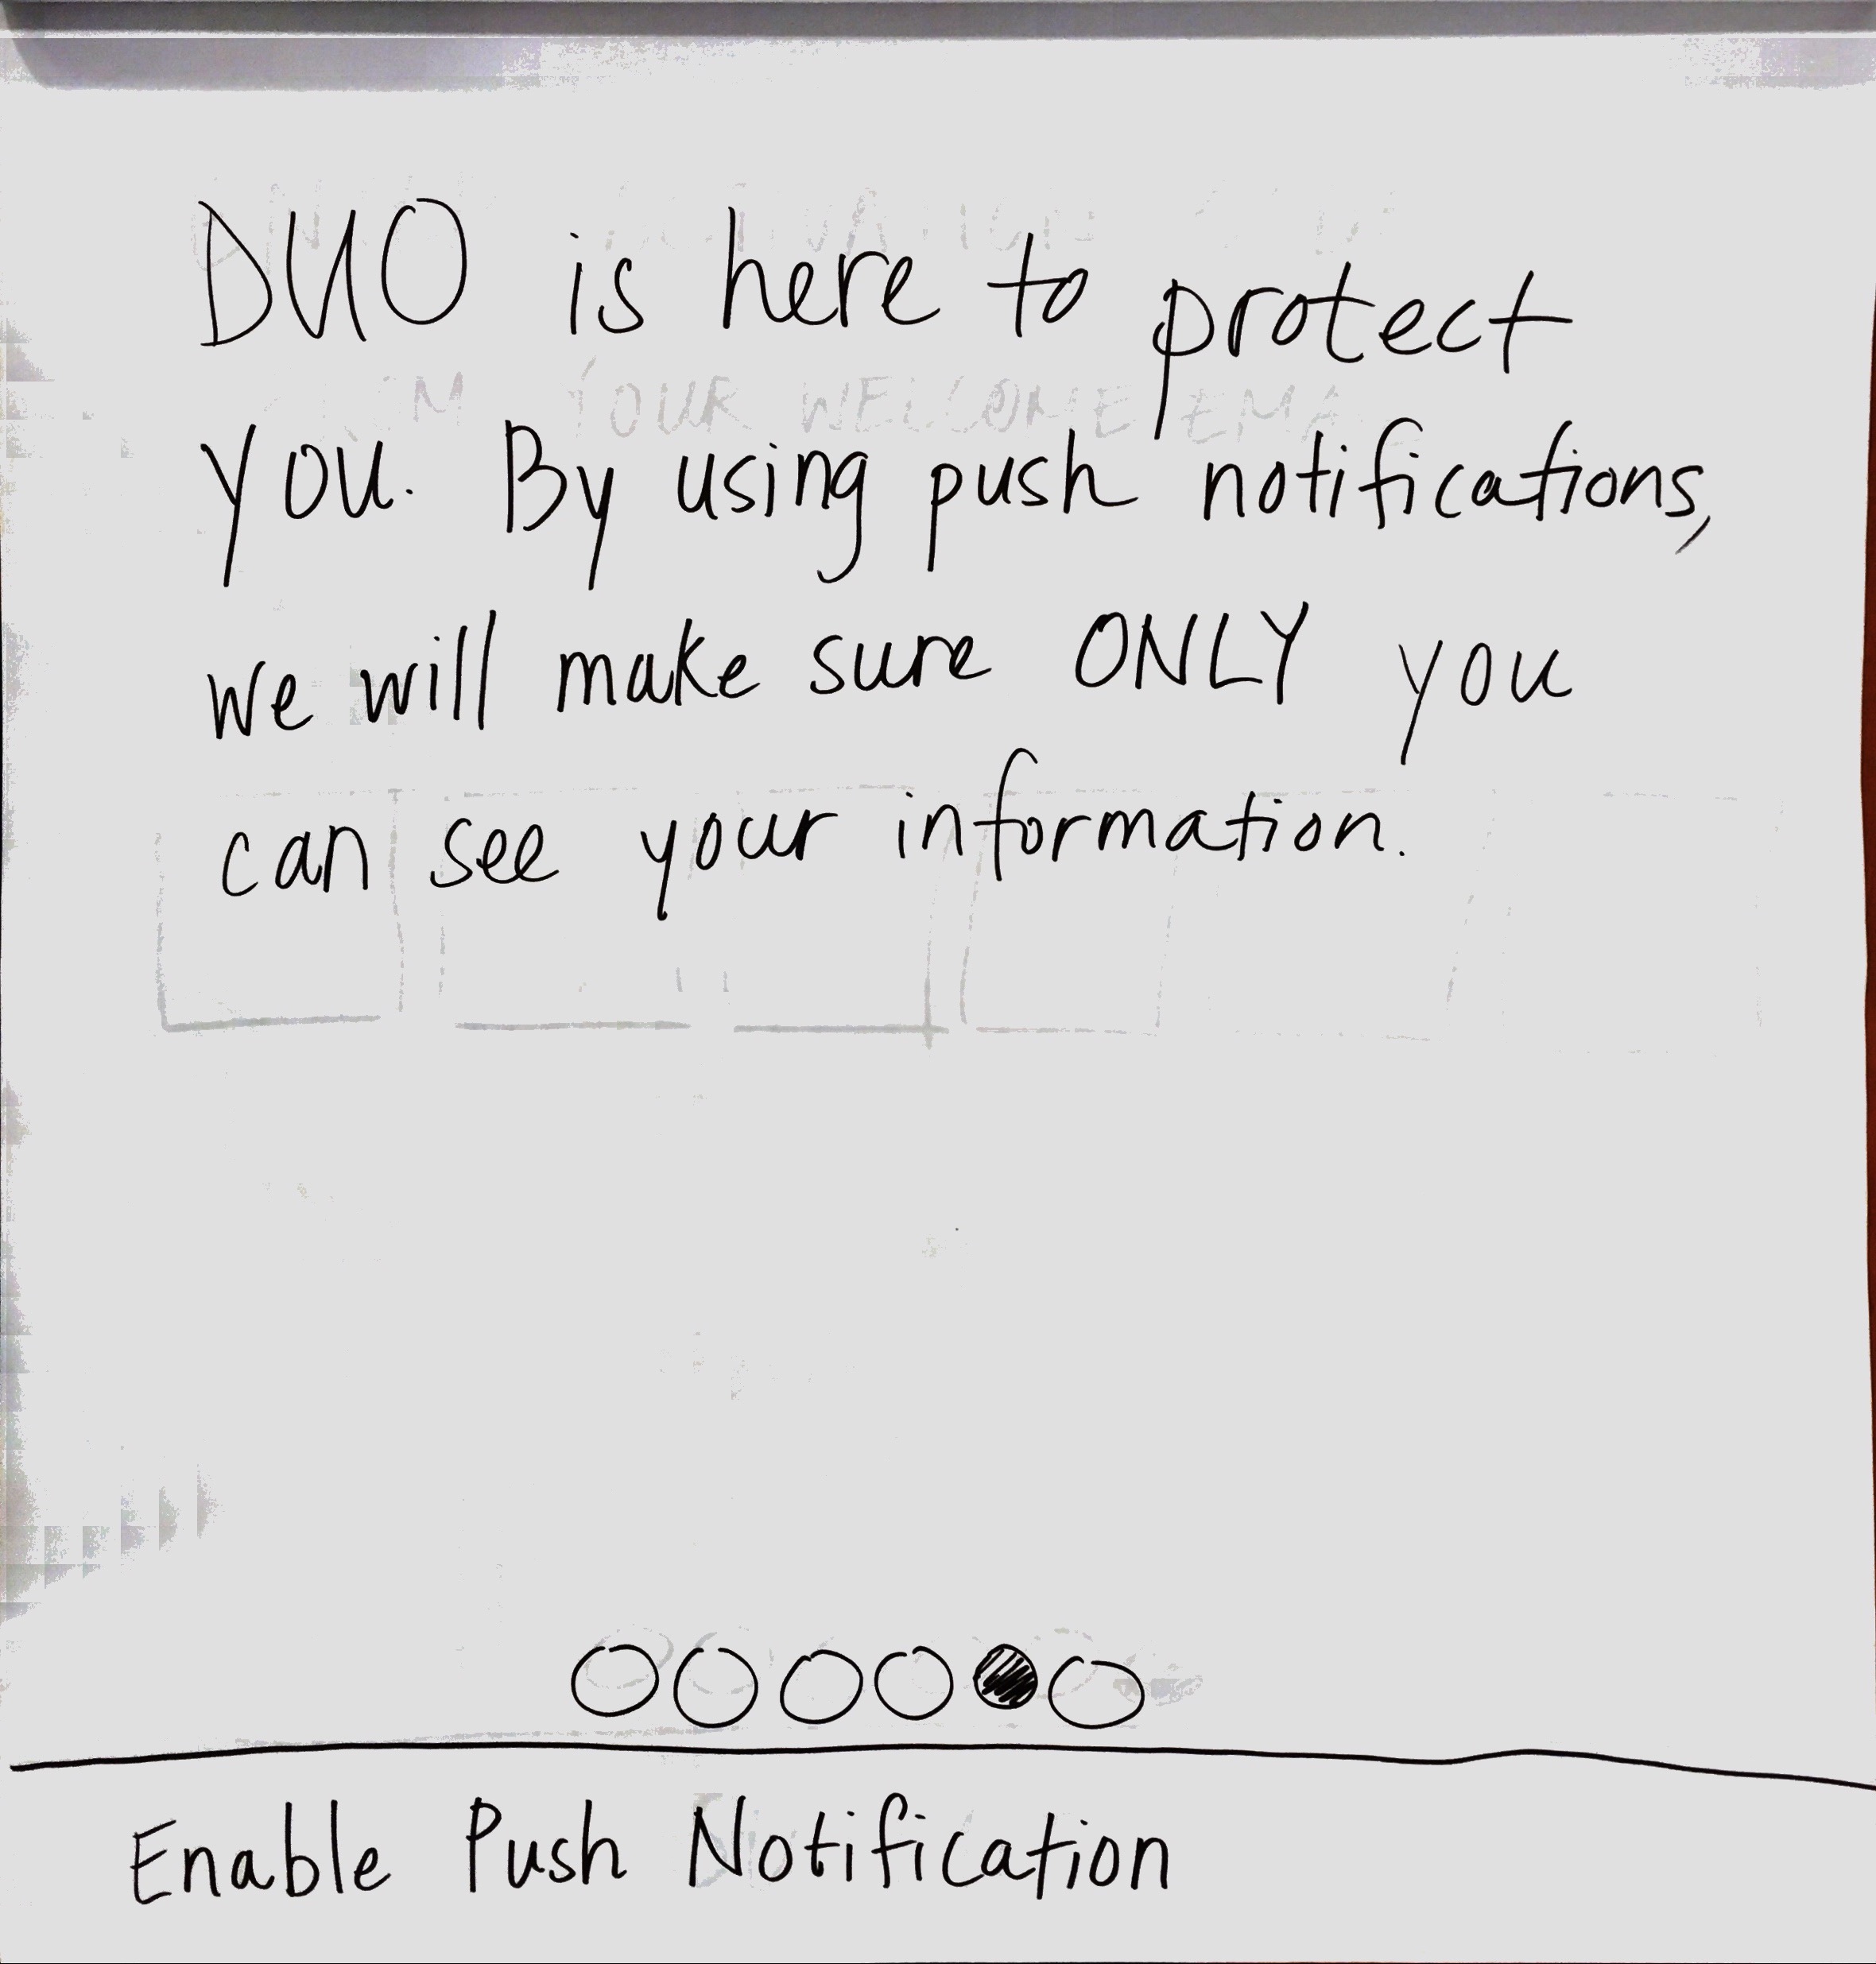 DUO is here to protect
you. By using push notifications,
we will make sure ONLY you
can see your information.
Enable Push Notification